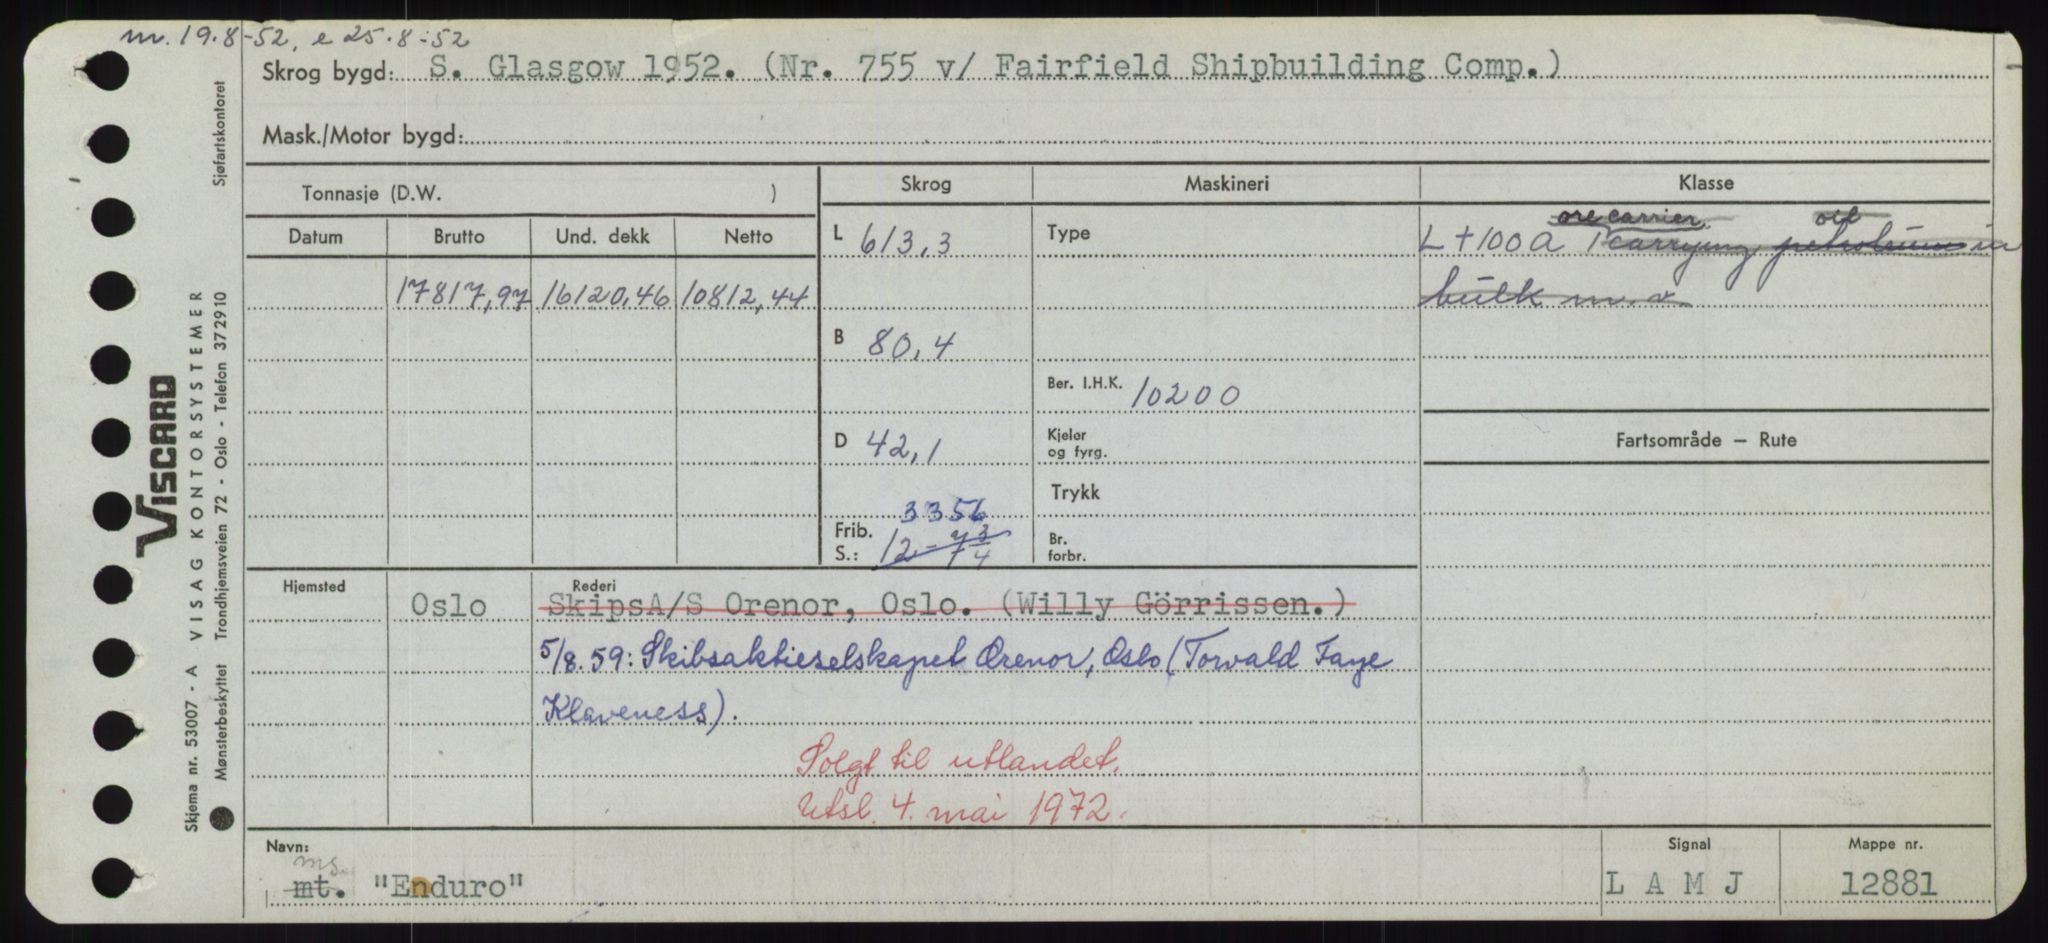 m. 19.8-52, e 25.8-52
Skrog bygd: S. Glasgow 1952. (Nr. 755 v/ Fairfield Shipbuilding Comp.)
Mask./Motor bygd:
Tonnasje (D.W. )
Skrog
Maskineri
Klasse
Datum
Brutto
Und. dekk
Netto
17817,97
16120,46
10812,44
L 613,3
B 80,4
D 42,1
3356
Frib. S.: 12 - 7 3/4
Type
Ber. I.H.K. 10200
Kjeler og fyrg.
Trykk
Br. forbr.
ore carrier oil
L + 100 A 1 carrying petroleum in
bulk m.v.
Fartsområde – Rute
Hjemsted
Oslo
Rederi
SkipsA/S Orenor, Oslo. (Willy Görrissen.)
5/8.59: Skibsaktieselskapet Orenor, Oslo (Torvald Faye
Klaveness).
Solgt til utlandet.
Utsl. 4. mai 1972.
Navn:
ms.
mt. "Enduro"
Signal
L A M J
Mappe nr.
12881
VISCARD
Skjema nr. 53007 - A VISAG KONTORSYSTEMER
Mønsterbeskyttet Trondhjemsveien 72 - Oslo - Telefon 372910 Sjøfartskontoret